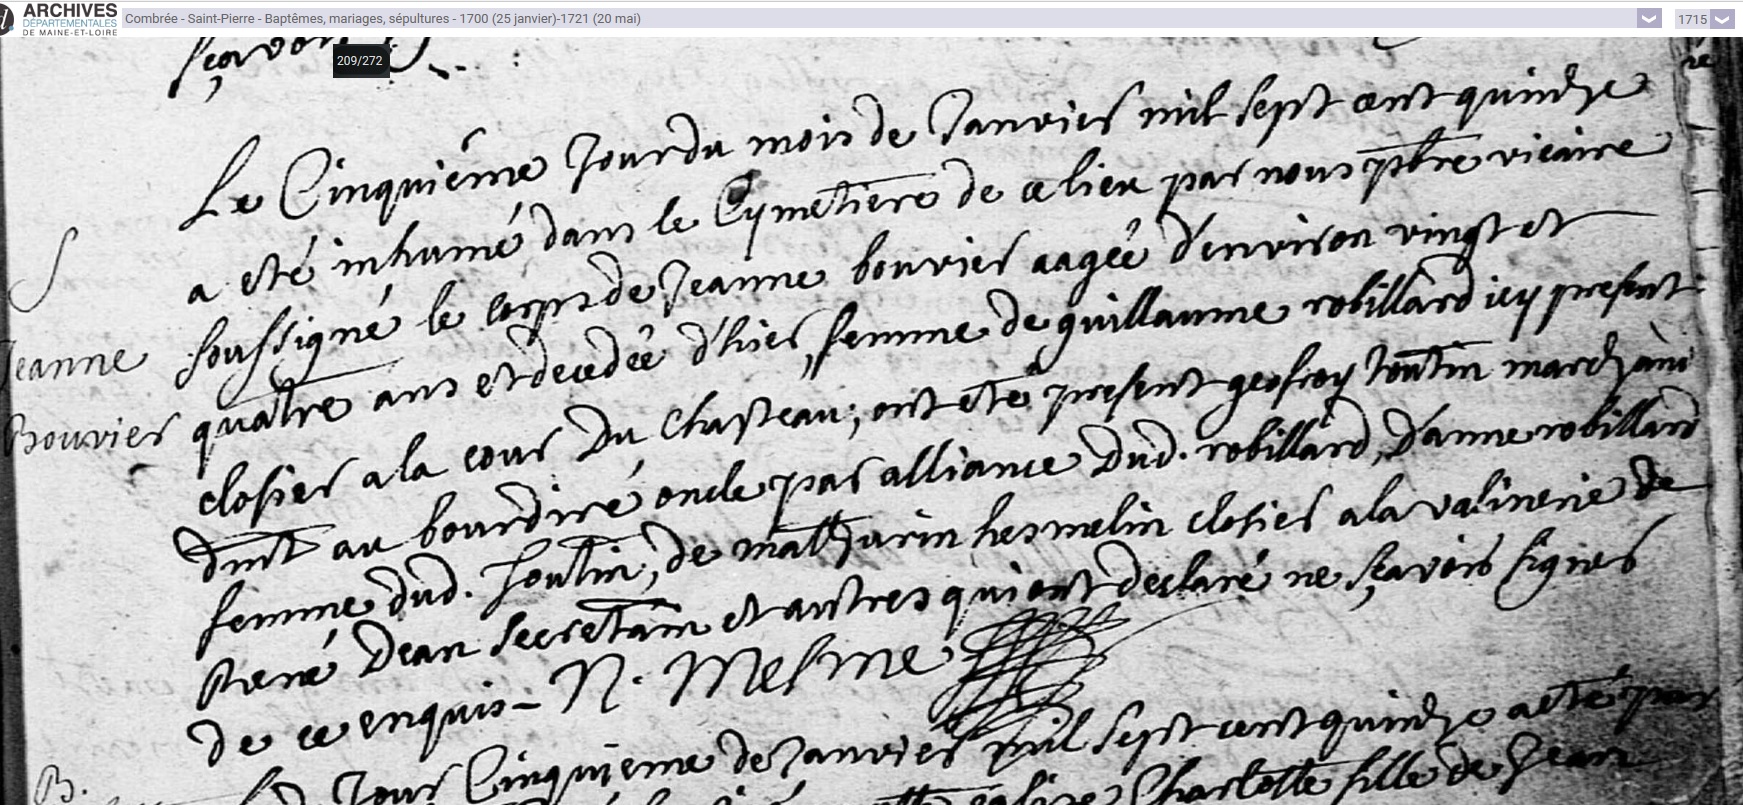 ARCHIVES
DÉPARTEMENTALES
DE MAINE-ET-LOIRE
Combrée - Saint-Pierre - Baptêmes, mariages, sépultures - 1700 (25 janvier)-1721 (20 mai)
1715
209/272
sçavoir
Le Cinquiéme Jour du mois de Janvier mil sept cent quindze
a eté inhumé dans le Cymetiere de ce lieu par nous pbre vicaire
soussigné le corps de Jeanne bouvier aagée d'environ vingt et
quatre ans et decedée d'hier, femme de guillaume robillard icy present
closier a la cour Du Chasteau; ont eté present geofroy toutin marchand
dmt au bourdiré oncle par alliance dud. robillard, d'anne robillard
femme dud. toutin, de mathurin hermelin closier a la valinerie de
René Dean secretain et autres qui ont declaré ne sçavoir signer
de ce enquis - N. Mesme
S
Jeanne
Bouvier
B.
Jour Cinquieme de Janvier mil sept cent quindze a eté par
Charlotte fille de Jean